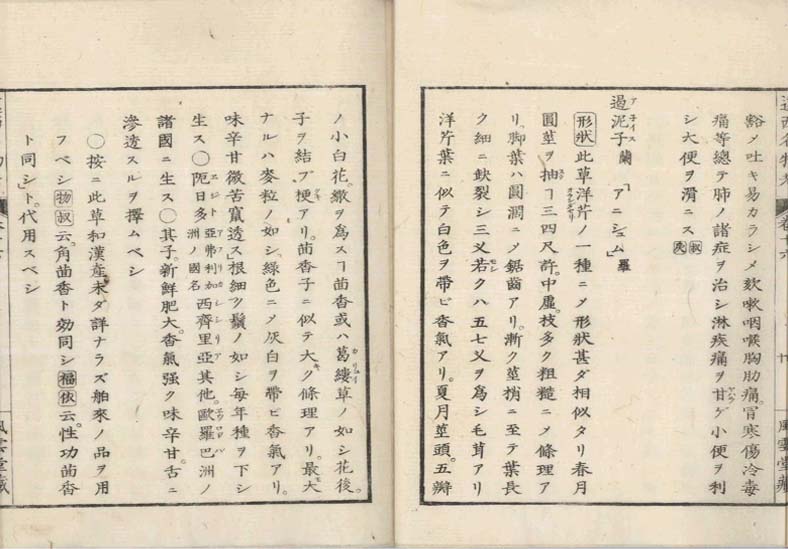 風雲堂藏
豁メ吐キ易カラシメ欬嗽咽喉胸肋痛。冒寒傷冷毒
痛等總テ肺ノ諸症ヲ治シ淋疾痛ヲ甘ゲ小便ヲ利
シ大便ヲ滑ニス
過泥子蘭 アニシュム 羅
形狀此草洋芹ノ一種ニメ形狀甚ダ相似タリ春月
圓莖ヲ抽ヿ三四尺許。中虛。枝多ク粗糙ニメ條理ア
リ。脚葉ハ圓濶ニメ鋸齒アリ。漸ク莖梢ニ至テ葉長
ク細ニ缺裂シ三叉若クハ五七叉ヲ爲シ毛茸アリ
洋芹葉ニ似テ白色ヲ帶ビ香氣アリ。夏月莖頭。五瓣
ノ小白花。繖ヲ爲スヿ茴香或ハ葛縷草ノ如シ花後。
子ヲ結ブ梗アリ。茴香子ニ似テ大ク條理アリ。最大
ナルハ麥粒ノ如シ。綠色ニメ灰白ヲ帶ビ香氣アリ。
味辛甘微苦竄透ス」根細ク鬚ノ如シ每年種ヲ下シ
生ス〇阨日多亞弗利加洲ノ國名西齊里亞其他。歐羅巴洲ノ
諸國ニ生ス〇其子。新鮮肥大。香氣强ク味辛甘。舌ニ
滲透スルヲ擇ムベシ
〇按ニ此草和漢産未ダ詳ナラズ舶來ノ品ヲ用
フベシ物叔云。角茴香ト効同シ福依云。性功茴香
ト同シト。代用スベシ
風雲堂藏